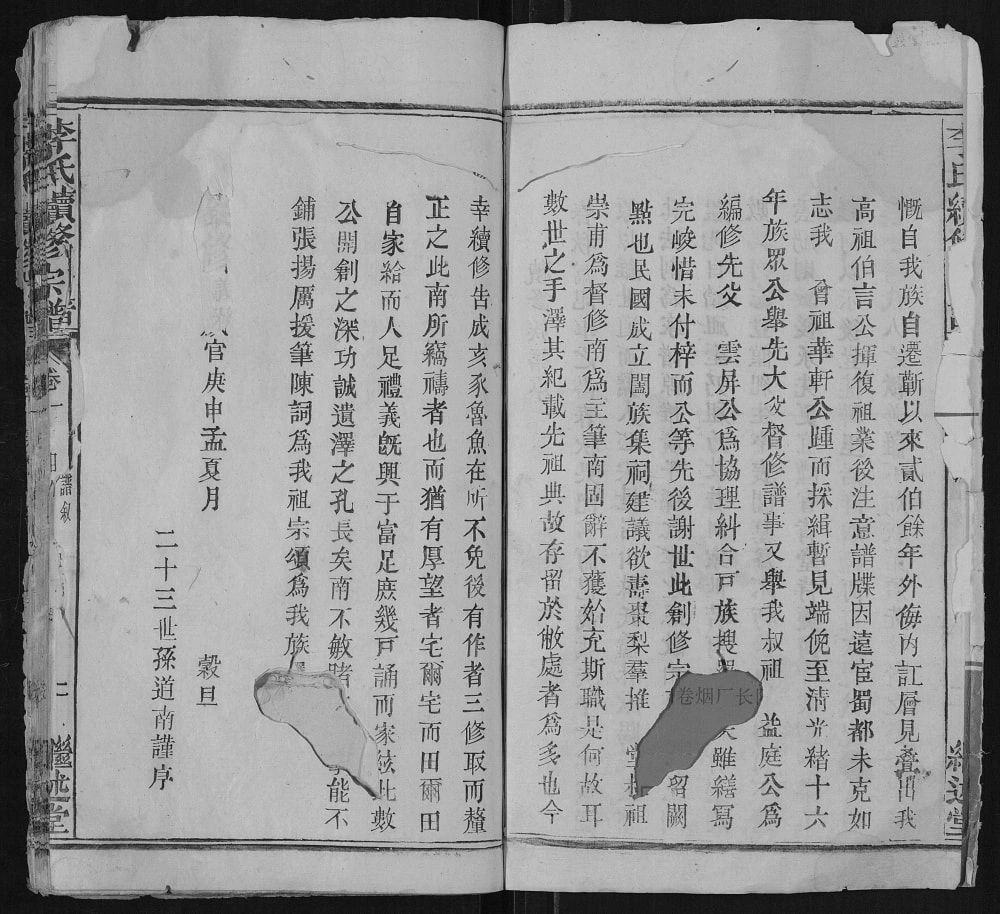 李氏續修
慨自我族自遷蘄以來貳伯餘年外侮內訌層見疊出我
高祖伯言公揮復祖業後注意譜牒因遠宦蜀都未克如
志我 曾祖華軒公踵而採緝暫見端倪至清光緒十六
年族眾公舉先大父督修譜事又舉我叔祖 益庭公為
編修先父 雲屏公為協理糾合戶族搜 矣雖繕寫
完峻惜未付梓而公等先後謝世此創修宗 留闕
點也民國成立闔族集祠建議欲壽棗梨羣推 堂叔祖
崇甫為督修南為主筆南固辭不獲始充斯職是何故耳
數世之手澤其紀載先祖典故存留於敝處者為多也今
卷烟厂长
繼述堂
幸續修告成亥豕魯魚在所不免後有作者三修取而釐
正之此南所竊禱者也而猶有厚望者宅爾宅而田爾田
自家給而人足禮義旣興于富足庶幾戶誦而家絃此數
公開創之深功誠遺澤之孔長矣南不敏 能不
鋪張揚厲援筆陳詞為我祖宗頌為我族
官庚申孟夏月 穀旦
二十三世孫道南謹序
李氏續修宗譜 卷一 譜叙 繼述堂